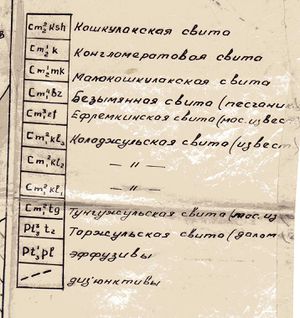 Cm₂²ksh Кошкулакская свита
Cm₂¹k Конгломератовая свита
Cm₂¹mk Малокошкулакская свита
Cm₁²bz Безымянная свита (песчаник
Cm₁²ef Ефремкинская свита (мос. извес
Cm₁²kl₃ Колоджульская свита (извест
Cm₁²kl₂ — " —
Cm₁²kl₁ — " —
Cm₁²tg Тунгужульская свита (мос. из
Pt₃²tz Торжульская свита (долом
Pt₃¹pl эффузивы
дизъюнктивы